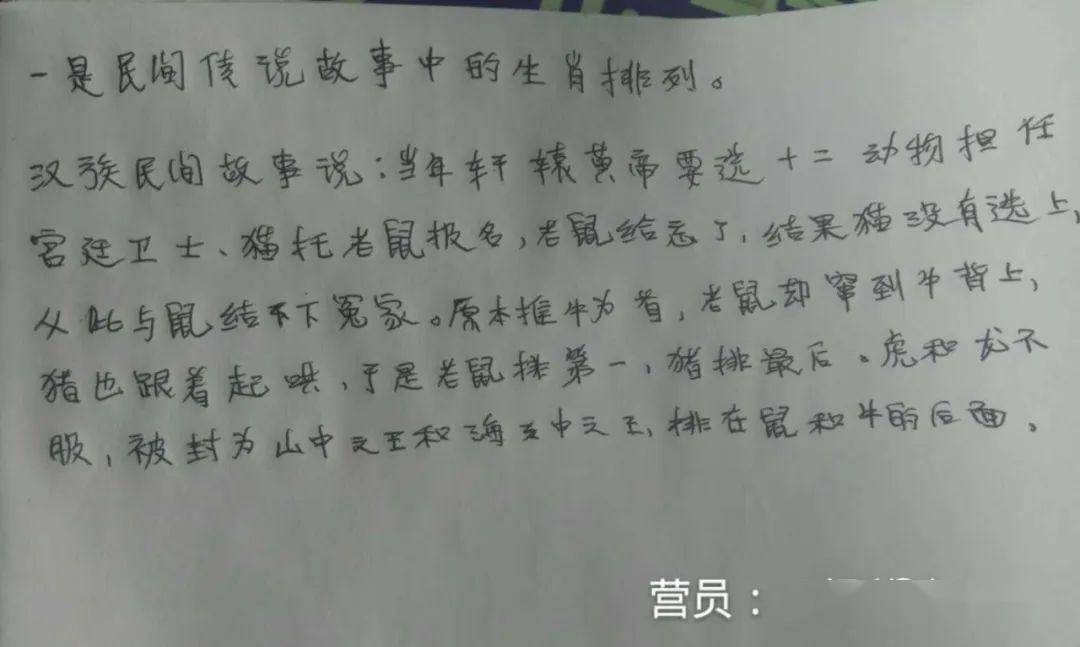 一是民间传说故事中的生肖排列。
汉族民间故事说:当年轩辕黄帝要选十二动物担任
宫廷卫士、猫托老鼠报名,老鼠给忘了,结果猫没有选上,
从此与鼠结下冤家。原本推牛为首,老鼠却窜到牛背上,
猪也跟着起哄,于是老鼠排第一,猪排最后。虎和龙不
服,被封为山中之王和海中之王,排在鼠和牛的后面。
营员: